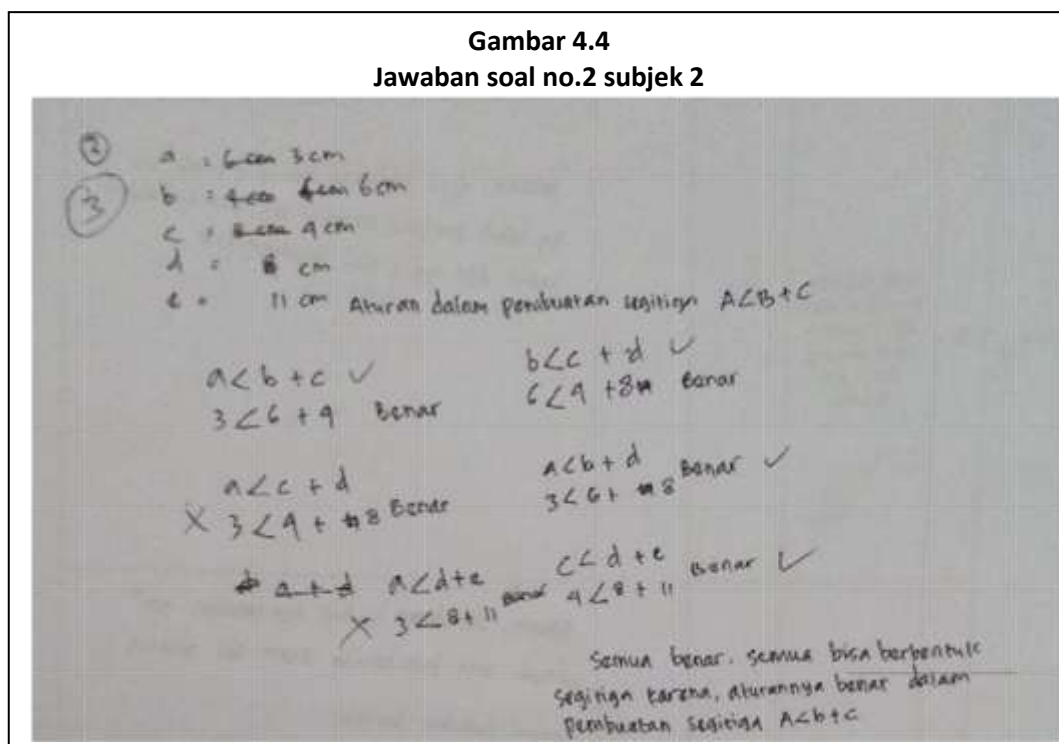 Gambar 4.4
Jawaban soal no.2 subjek 2
②
③
a : 6 cm 3 cm
b : 4 cm 6 cm
c : 4 cm
d = 8 cm
e = 11 cm Aturan dalam pembuatan segitiga A<B+C
a<b+c ✓ b<c + d ✓
3<6 + 4 Benar 6<4 +8 Benar
a<c + d a<b + d Benar ✓
X 3<4 + 8 Benar 3<6+ 8
a + d a<d+e c<d +e Benar ✓
X 3<8+11 Benar 4<8 + 11
Semua benar. semua bisa berbentuk
segitiga karena, aturannya benar dalam
pembuatan segitiga A<b+c